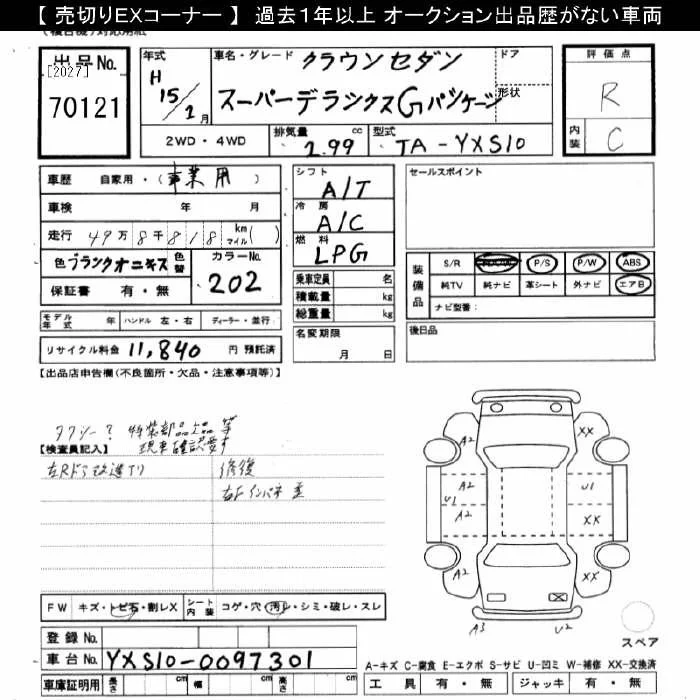 【 売切りEXコーナー 】 過去1年以上 オークション出品歴がない車両
出品No.
[2027]
70121
年式
H
15/2月
車名・グレード
クラウンセダン
スーパーデラックスGパッケージ
ドア
形状
2WD・4WD
排気量
2.99 cc
型式
TA-YXS10
評価点
R
内装
C
車歴 自家用・(事業用)
車検 年 月
走行 49万8千818 km マイル( )
色 ブラックオニキス 色替 カラーNo. 202
保証書 有・無
シフト A/T
冷房 A/C
燃料 LPG
乗車定員 名
積載量 kg
総重量 kg
名変期限
月 日
セールスポイント
装備品
S/R P/S P/W ABS
純TV 純ナビ 革シート 外ナビ エアB
ナビ型番:
後日品
モデル年式 年 ハンドル 左・右 ディーラー・並行
リサイクル料金 11,840 円 預託済
【出品店申告欄(不良箇所・欠品・注意事項等)】
タクシー? 特装部品欠品 等
現車確認要す
【検査員記入】
左Rドア改造アリ
修復
右Fインパネ 歪
FW キズ・トビ石・割レX シート内装 コゲ・穴・汚レ・シミ・破レ・スレ
登録 No.
車台 No. YXS10-0097301
車庫証明用 長さ 幅 高さ
A2
XX
A2
U1
U1
A2
XX
A2
XX
A3
U2
スペア
A-キズ C-腐食 E-エクボ S-サビ U-凹ミ W-補修 XX-交換済
工具 有・無 ジャッキ 有・無